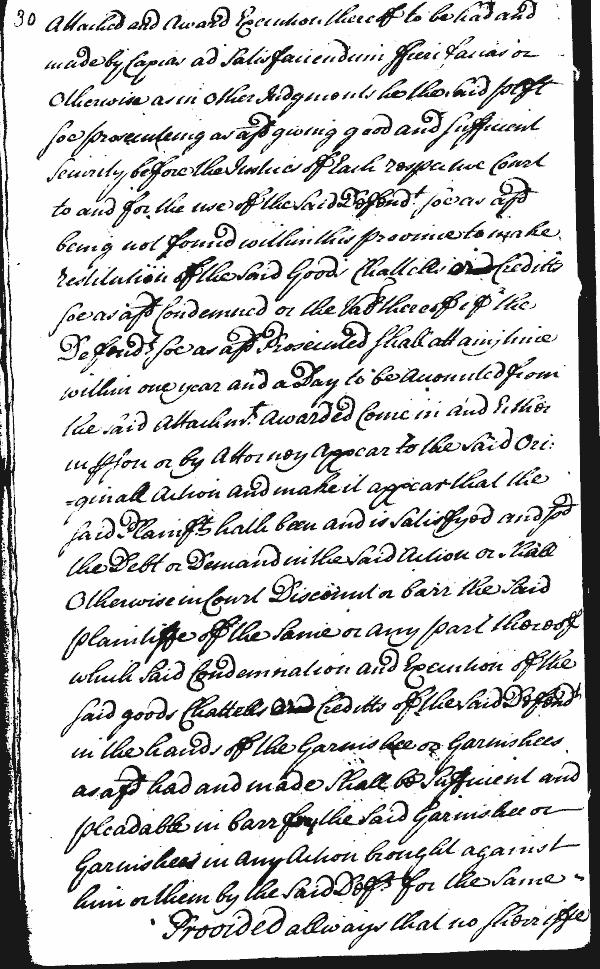 30
Attached and Award Execution thereof to be had and
made by Capias ad Satisfaciendum ffieri facias or
Otherwise as in Other Judgments he the said pltff
soe prosecuteing as afsd giving good and sufficient
Security before the Justices of Each respective Court
to and for the use of the said Defendt soe as afsd
being not found within this province to make
restitution of the said Goods Chattells and Creditts
soe as afsd Condemned or the Vale thereof if the
Defendt soe as afsd Prosecuted shall att any time
within one year and a Day to be accounted from
the said Attachmt Awarded Come in and Either
in pson or by Attorney Appear to the said Ori:
=ginall Action and make it appear that the
said Plaintf hath been and is satisfyed and pd
the Debt or Demand in the said Action or shall
Otherwise in Court Discount or barr the said
plaintiffe of the same or any part thereof
which said Condemnation and Execution of the
said goods Chattells and Creditts of the said Defendt
in the hands of the Garnishee or Garnishees
as afsd had and made shall be sufficient and
pleadable in barr for the said Garnishee or
Garnishees in any Action brought against
him or them by the said Deft for the same
Provided allways that no sherriffe